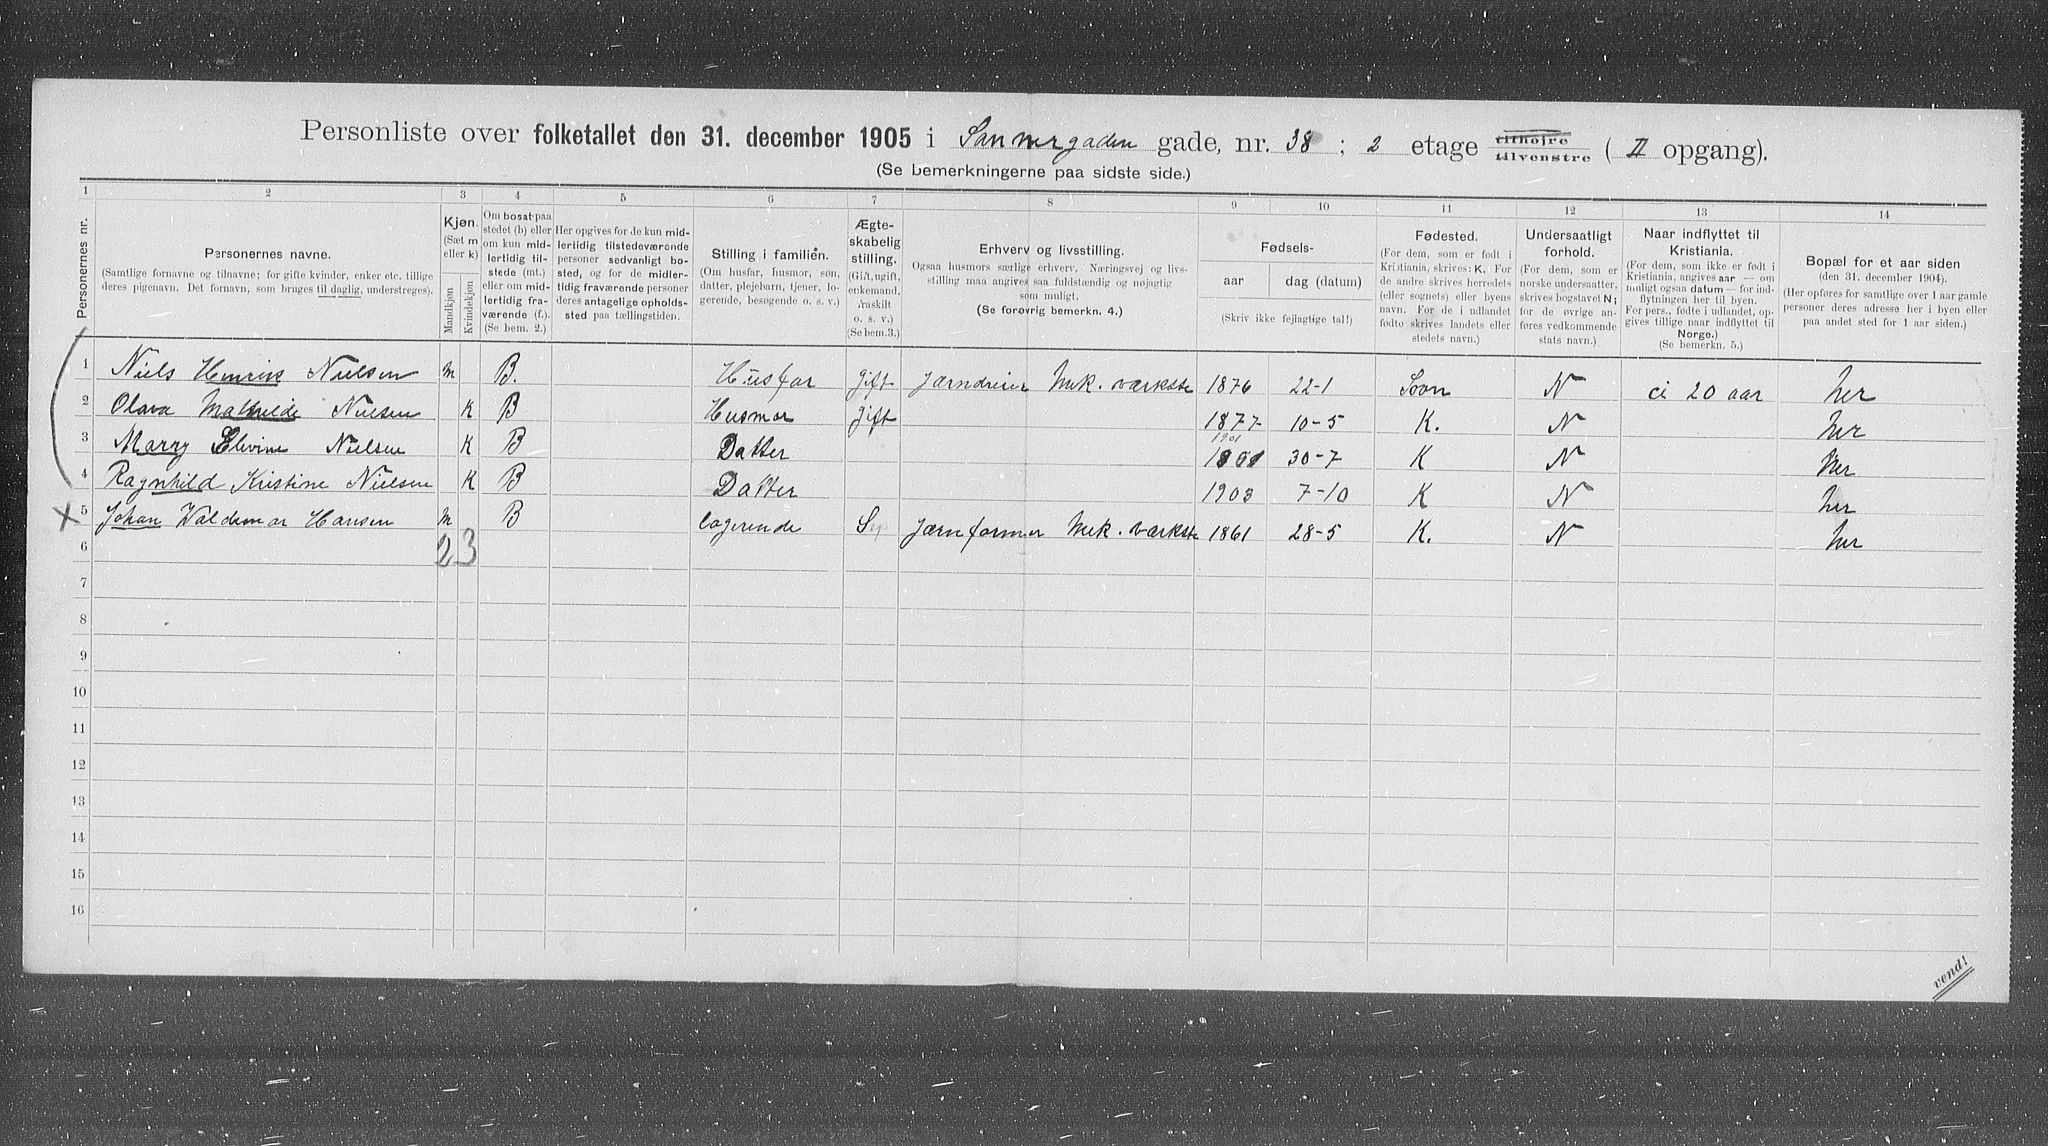 Personliste over folketallet den 31. december 1905 i Sannergaden gade, nr. 38 ; 2 etage tilhøjre tilvenstre ( II opgang).
(Se bemerkningerne paa sidste side.)
1 2 3 4 5 6 7 8 9 10 11 12 13 14
Personernes nr.
Personernes navne.
(Samtlige fornavne og tilnavne; for gifte kvinder, enker etc. tillige
deres pigenavn. Det fornavn, som bruges til daglig, understreges).
Kjøn.
(Sæt m
eller k)
Mandkjøn
Kvindekjøn
Om bosat paa
stedet (b) eller
om kun mid-
lertidig til-
stede (mt.)
eller om mid-
lertidig fra-
værende (f.).
(Se bem. 2.)
Her opgives for de kun mid-
lertidig tilstedeværende
personer sedvanligt bo-
sted, og for de midler-
tidig fraværende personer
deres antagelige opholds-
sted paa tællingstiden.
Stilling i familien.
(Om husfar, husmor, søn,
datter, plejebarn, tjener, lo-
gerende, besøgende o. s. v.)
Ægte-
skabelig
stilling.
(Gift, ugift,
enkemand,
fraskilt
o. s. v.)
(Se bem. 3.)
Erhverv og livsstilling.
Ogsaa husmors særlige erhverv. Næringsvej og livs-
stilling maa angives saa fuldstændig og nøjagtig
som muligt.
(Se forøvrig bemerkn. 4.)
Fødsels-
aar dag (datum)
(Skriv ikke fejlagtige tal!)
Fødested.
(For dem, som er født i
Kristiania, skrives: K. For
de andre skrives herredets
(eller sognets) eller byens
navn. For de i udlandet
fødte skrives landets eller
stedets navn.)
Undersaatligt
forhold.
(For dem, som er
norske undersaatter,
skrives bogstavet N;
for de øvrige an-
føres vedkommende
stats navn.)
Naar indflyttet til
Kristiania.
(For dem, som ikke er født i
Kristiania, angives aar — om
muligt ogsaa datum — for ind-
flytningen her til byen.
For pers., fødte i udlandet, op-
gives tillige naar indflyttet til
Norge.)
(Se bemerkn. 5.)
Bopæl for et aar siden
(den 31. december 1904).
(Her opføres for samtlige over 1 aar gamle
personer deres adresse her i byen eller
paa andet sted for 1 aar siden.)
1 Niels Henrik Nielsen m B. Husfar gift Jærndreier Mek. værkste 1876 22-1 Soon N ci 20 aar her
2 Olava Mathilde Nielsen K B Husmor gift 1877 10-5 K. N her
3 Marry Elevine Nielsen K B Datter 1901 30-7 K N her
4 Ragnhild Kristine Nielsen K B Datter 1903 7-10 K N her
5 Johan Waldemar Hansen m B logerende S Jærnformer Mek. værkste 1861 28-5 K. N her
6 2 3
7
8
9
10
11
12
13
14
15
16
vend!